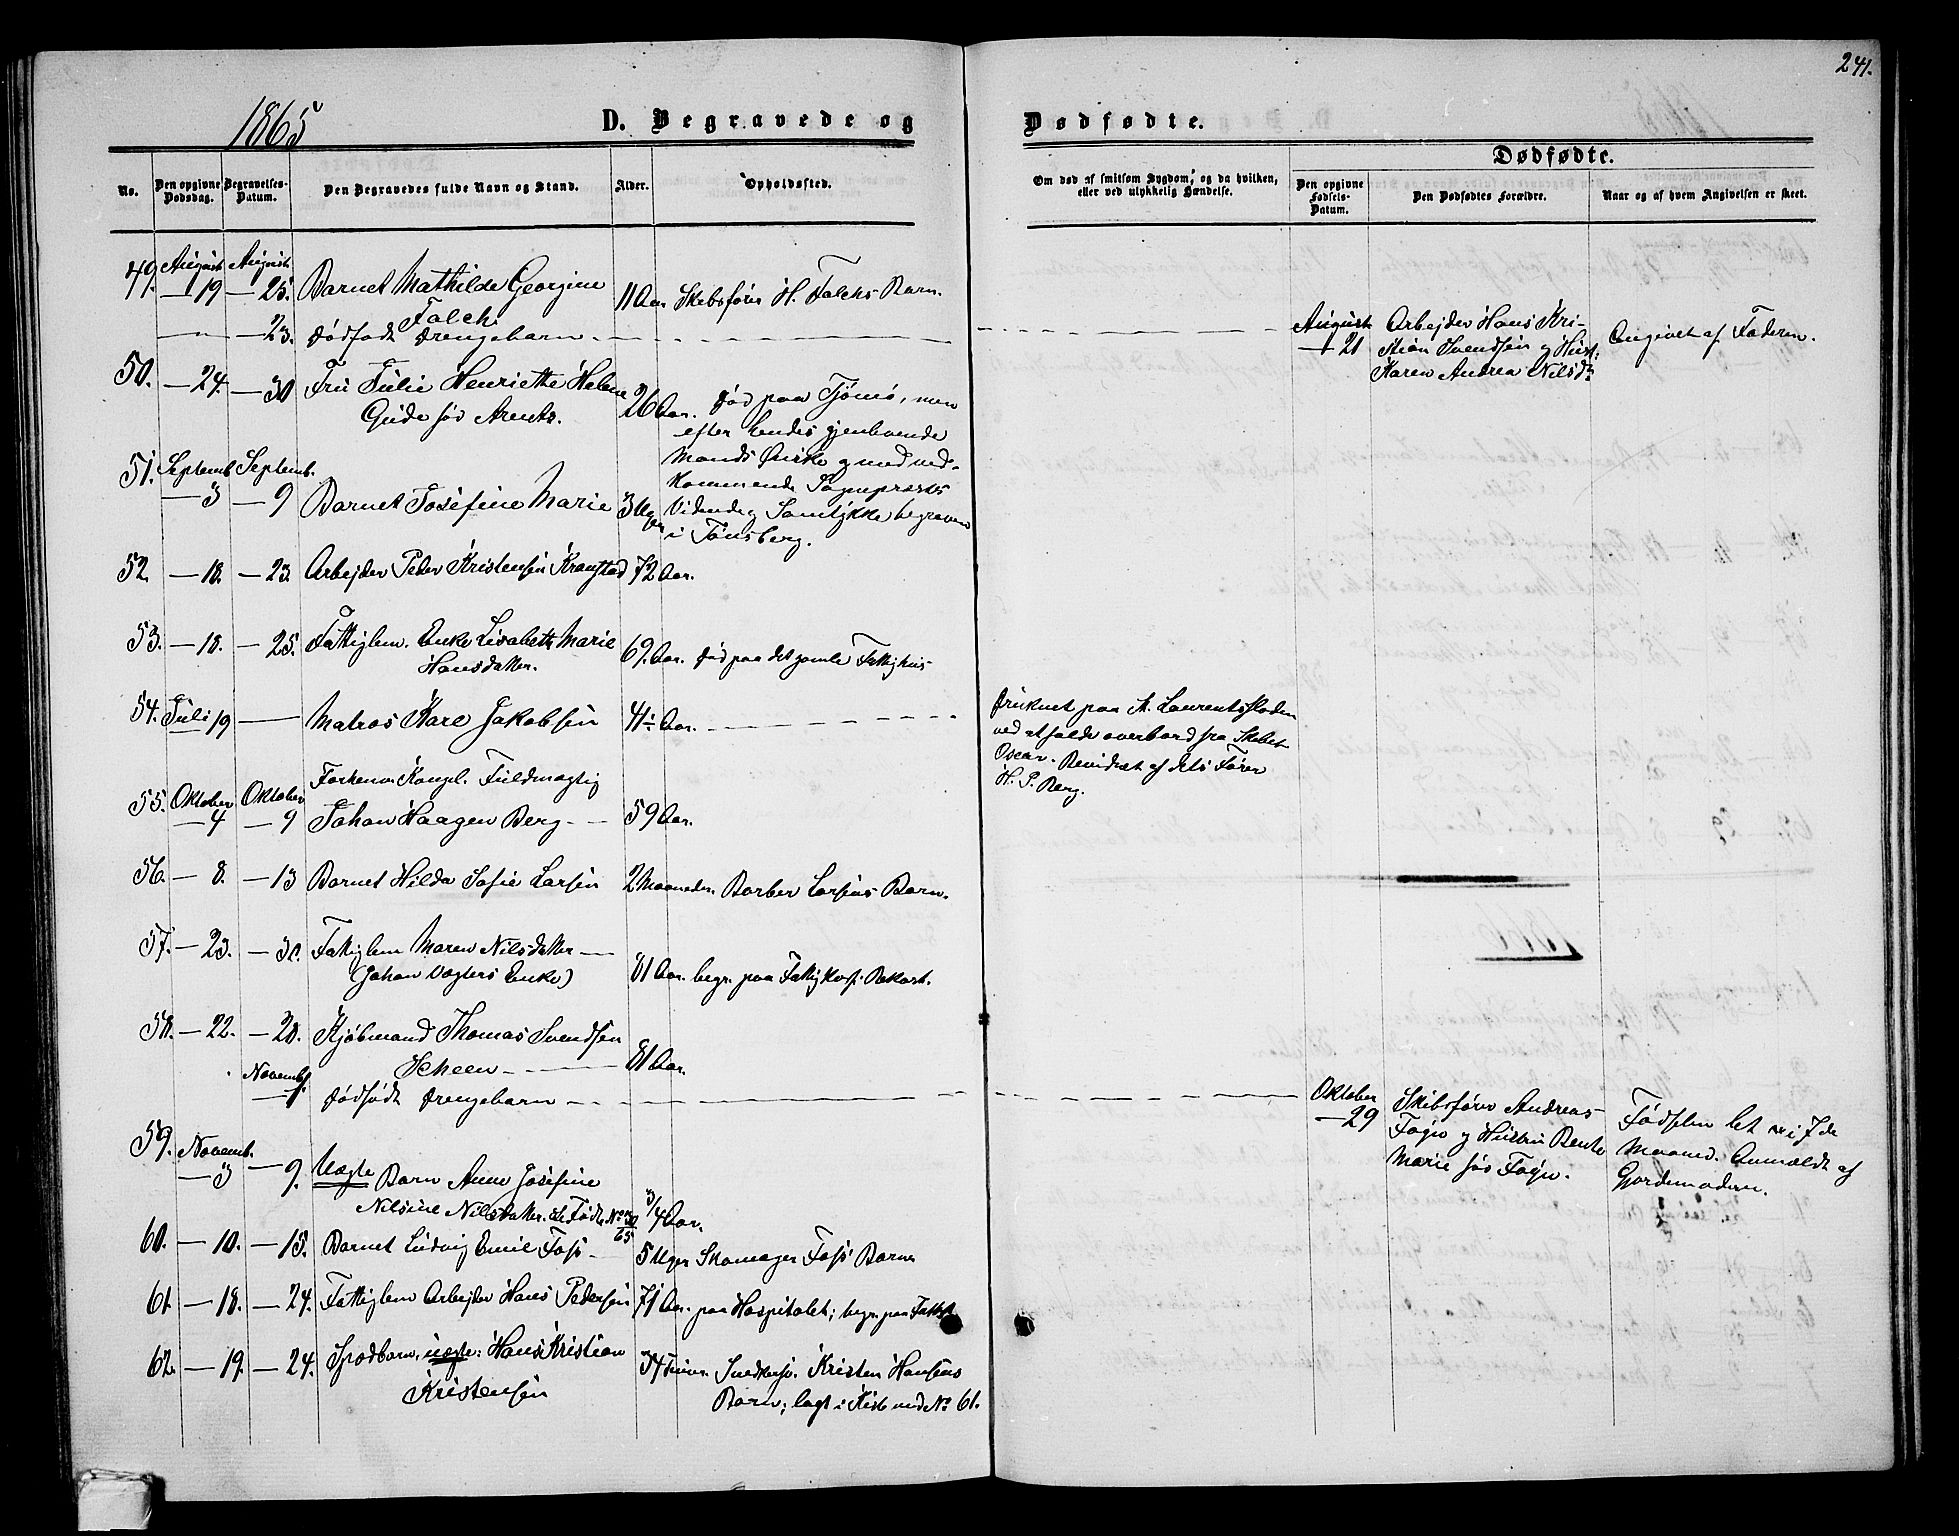 241.
1865
D. Begravede og
Dødfødte.
Dødfødte.
No.
Den opgivne Dødsdag.
Begravelses-Datum.
Den Begravedes fulde Navn og Stand.
Alder.
Opholdssted.
Om død af smitsom Sygdom, og da hvilken,
eller ved ulykkelig Hændelse.
Den opgivne Fødsels-Datum.
Den Dødfødtes Forældre.
Naar og af hvem Angivelsen er skeet.
49. August 19 August 25. Barnet Mathilde Georgine 11 Aar Skibsfører H. Falchs Barn.
Falch
— 23. Dødfødt Drengebarn — August 21 Arbejder Hans Kri- Angivet af Faderen.
stian Svendsen og Hust.
Karen Andrea Nilsd:
50. — 24. — 30 Fru Julie Henriette Helene 26 Aar. Død paa Tjømø, men
Gude fød Arentz.
efter hendes gjenlevende
Mands Ønske og med ved-
kommende Sognepræsts
Vidende og Samtykke begraven
i Tønsberg.
51. Septemb. 3 Septemb. 9 Barnet Josefine Marie 3 Uger
52. — 18. — 23. Arbejder Peder Kristensen 72 Aar.
53. — 18. — 25. Fattiglem. Enke Lisabeth Marie 69. Aar. Død paa det gamle Fattighus
Hansdatter.
54. Juli 19 — Matros Kare Jakobsen 41 Aar. — Druknet paa St. Laurentsfloden
ved at falde overbord fra Skibet
Oscar. Bevidnet af dets Fører
H. P. Berg.
55. Oktober 4 Oktober 9 Forhenv. Kongl. Fuldmægtig
Johan Haagen Berg — 59 Aar.
56. — 8. — 13 Barnet Hilda Sofie Larsen 2 Maaneder. Barber Larsens Barn.
57. — 23. — 30. Fattiglem Maren Nilsdatter —
(Johan Vægters Enke) 81 Aar. begr. paa Bekost.
58. — 22. — 28. Kjøbmand Thomas Svendsen
Scheen — 81 Aar.
Novemb. 1 Dødfødt Drengebarn — Oktober 29 Skibsfører Andreas Fødselen let i 7de
Føyn og Hustru Bente Maaned. Anmeldt af
Marie fød Føyn. Gjordemoderen.
59. Novemb. 3 — 9. Uægte Barn Anne Josefine
Nilsine Nilsdatter. Føds. No 30/65 3/4 Aar.
60. — 10. — 15. Barnet Ludvig Emil Foss — 5 Uger Skomager Foss' Barn
61. — 18. — 24. Fattiglem Arbejder Hans Pedersen 71 Aar. paa Hospitalet; begr. paa
62. — 19. — 24. Spædbarn, uægte: Hans Kristian 34 Timer. Kristen Hansens
Kristensen Barn; lagt i Kiste med No 61.
1866